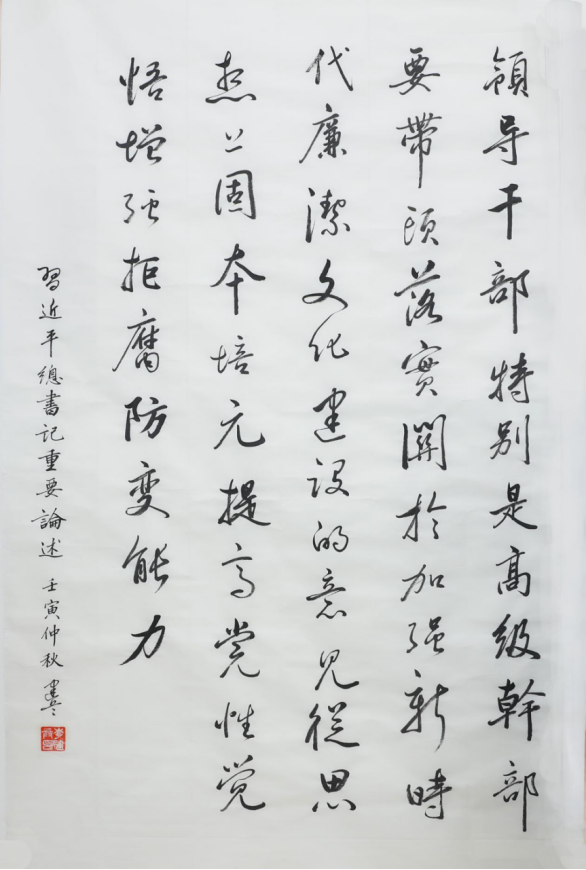 領导干部特别是高级幹部
要帶頭落實關於加强新時
代廉潔文化建设的意见從思
想上固本培元提高党性觉
悟增强拒腐防变能力
習近平總書记重要論述 壬寅仲秋